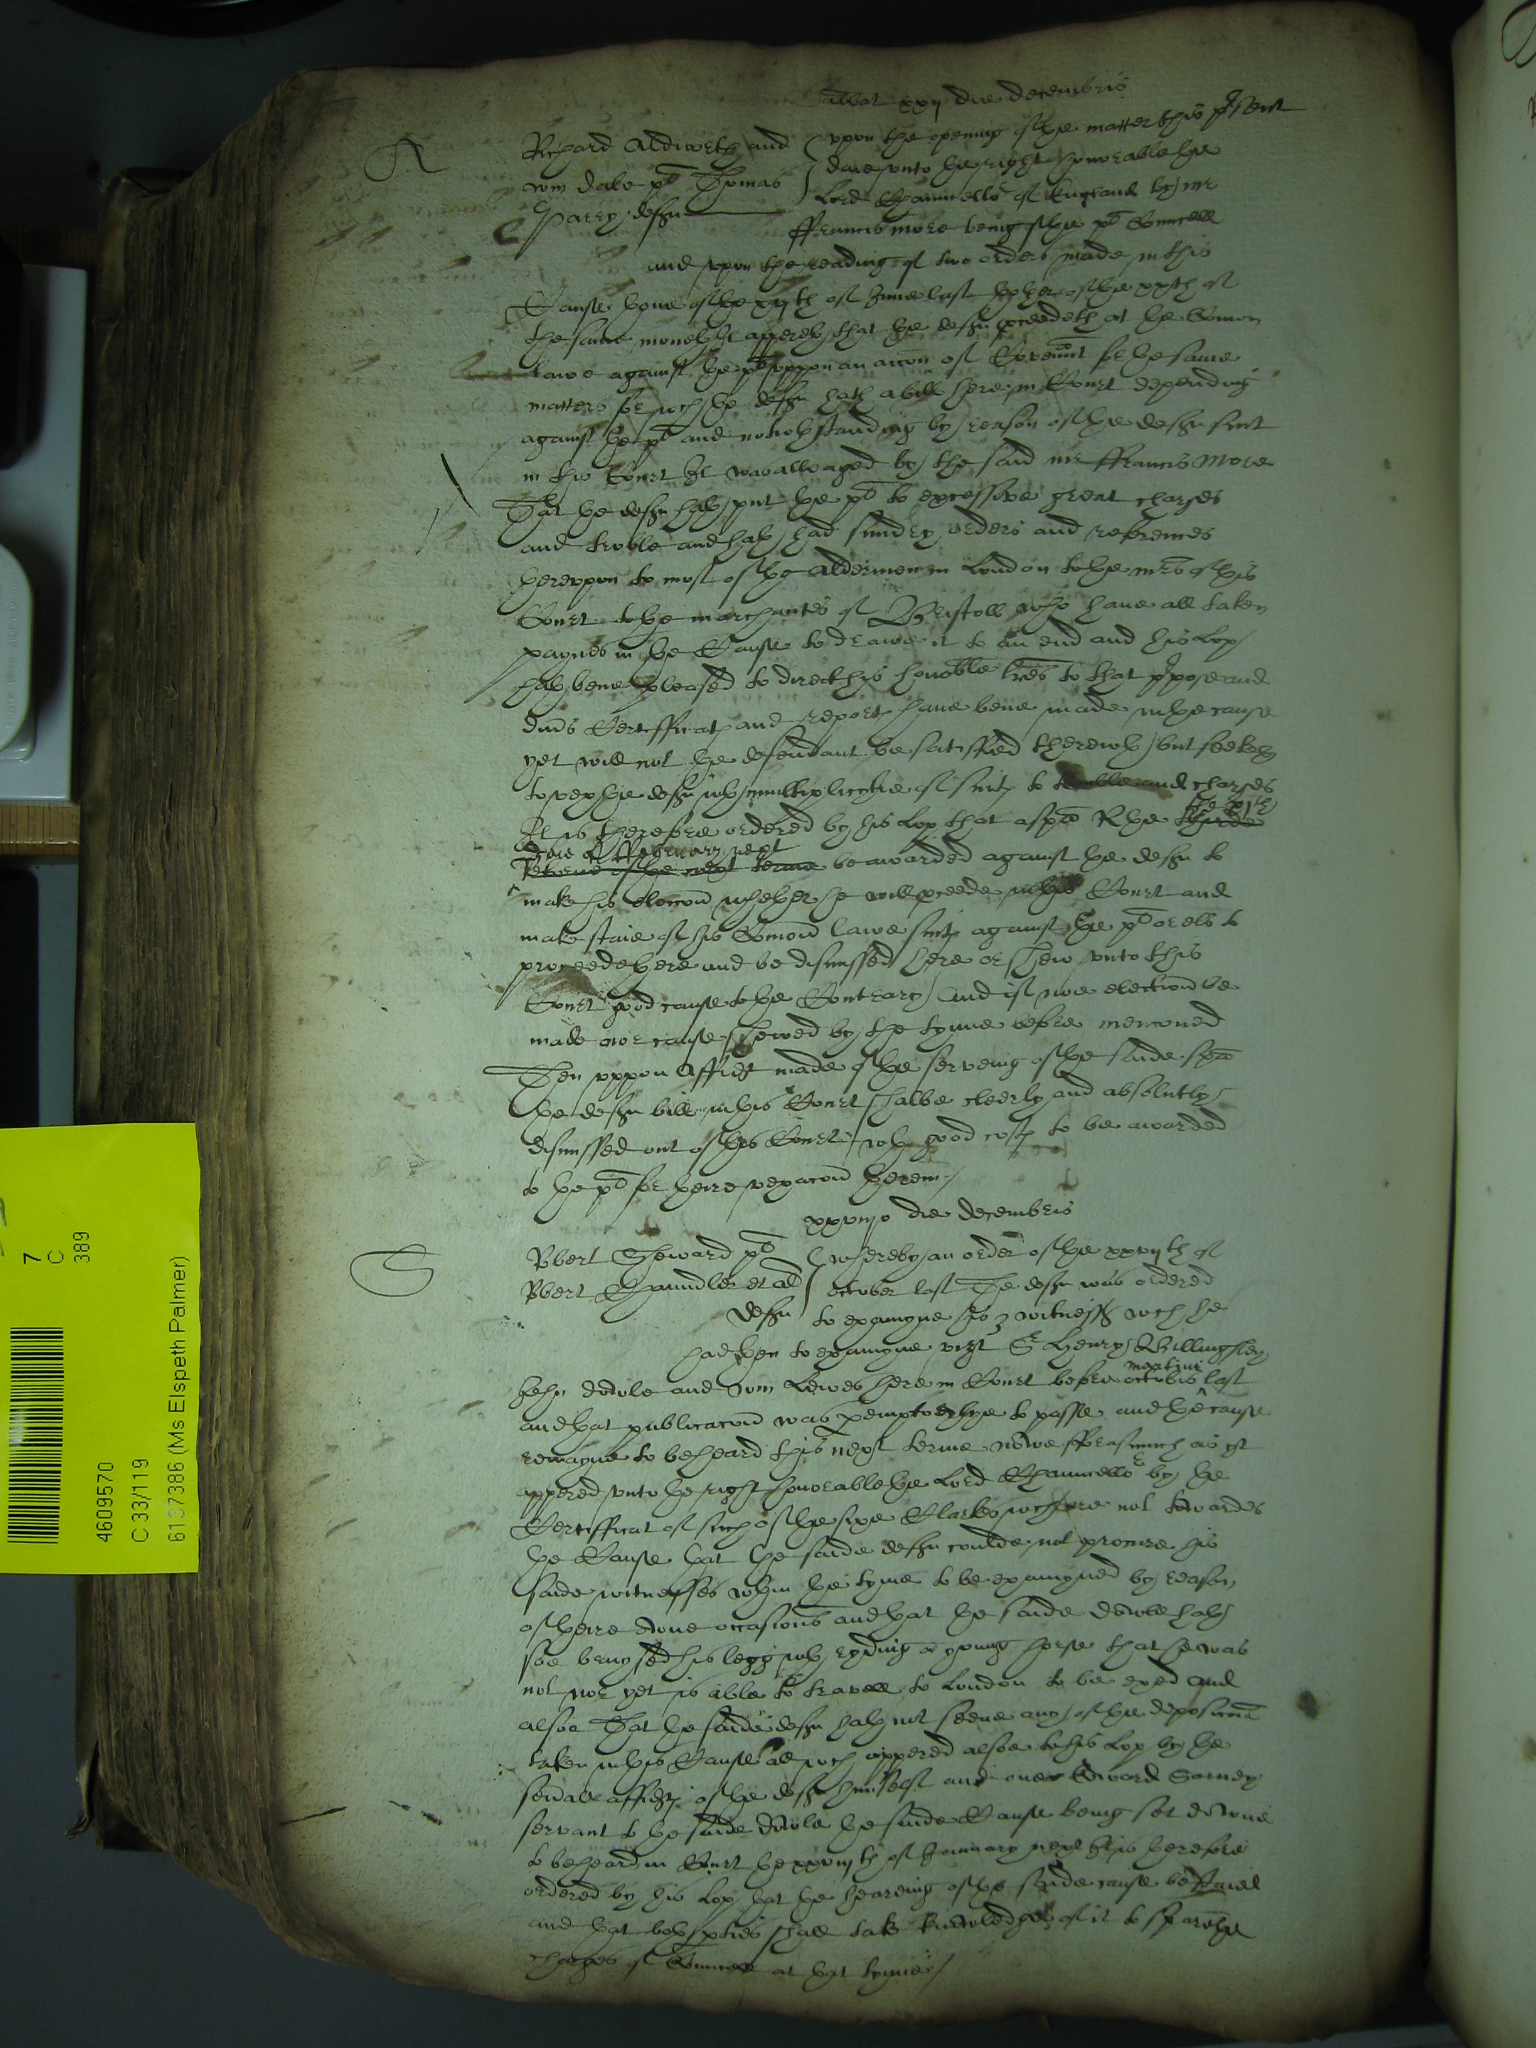 Sabbat xxij die decembris
A
Richard Aldworth and
wm dale plt Thomas
Parry deft
upon the openinge of the matter this pñte
daie unto the right honorable the
Lord Chauncellor of England by mr
ffrauncis more being of the plt Councell
and uppon the reading of two orders made in this
Cause thone of the xijth of June last thother of the xxth of
the same moneth It appereth that the deft pceedeth at the Comon
lawe against the plt uppon an accon of Covennt for the same
matters for wch the deft hath a bill here in Court depending
against the plt and notwthstanding by reason of the defts suit
in this Court It was alleaged by the said mr ffrauncis More
That the deft hath put the plt to excessive great charges
and troble and hath had sundry orders and references
thereupon to most of the Aldermen in London to the mrs of this
Court to the marchantes of Bristoll who have all taken
paynes in the Cause to drawe it to an end and his Lop
hath bene pleased to direct his honoble lres to that purpose and
divs Certifficats and reports have bene made in the cause
yet will not the defendant be satisfied therewth but seeketh
to vex the deft wth multiplicitie of suits to troble and charges
It is therefore ordered by his Lop that a spa R the third
the xth
daie of ffebruary next
Retorne of the next terme be awarded against the deft to
make his eleccon whether he will pceede in this Court and
make staie of his Comon lawe suits against the plt or els to
proceede there and be dismissed here or shew unto this
Court good cause to the Contrary And if noe election be
made nor cause shewed by the tyme before mencioned
Then uppon Affidt made of the serveing of the saide spa
the defts bill in this Court shalbe cleerly and absolutly
dismissed out of this Court wth good costs to be awarded
to the plt for theire vexacon therein
xxviijo die decembris
S
Robert Seward plt
Robert Chaundler et al
defts
Whereby an order of the xxvijth of
October last The deft was ordered
to examyne his 3 witnesses wch he
had then to examyne vizt Sr Henry Billingsley
John dowle and wm Lewes here in Court before octabis last
martini
and that publicacon was pemptorylye to passe and the cause
remayne to be heard this next terme Nowe fforasmuch as yt
appered unto the right honorable the Lord Chauncellor by the
Certifficat of such of the sixe Clarkes wch are not towardes
the Cause that the saide deft coulde not procure his
saide witnesses wthin the tyme to be examyned by reason
of theire owne occasions and that the saide dowle hath
soe brused his legg wth ryding a young horse that he was
not nor yet is able to travell to London to be exed And
alsoe That the saide deft hath not seene any of the deposicons
taken in this Cause all wch appered alsoe to his Lop by the
sevall affidts of the deft himselfe and one Edward Sarney
servant to the saide dowle the saide Cause being set downe
to be heard in Court the xxviijth of January next It is therefore
ordered by his Lop that the heareing of the saide cause be staied
and that both pties shall take knowledge of it to spare the
charges of Councell at that tyme
7
C
389
4609570
C 33/119
6137386 (Ms Elspeth Palmer)